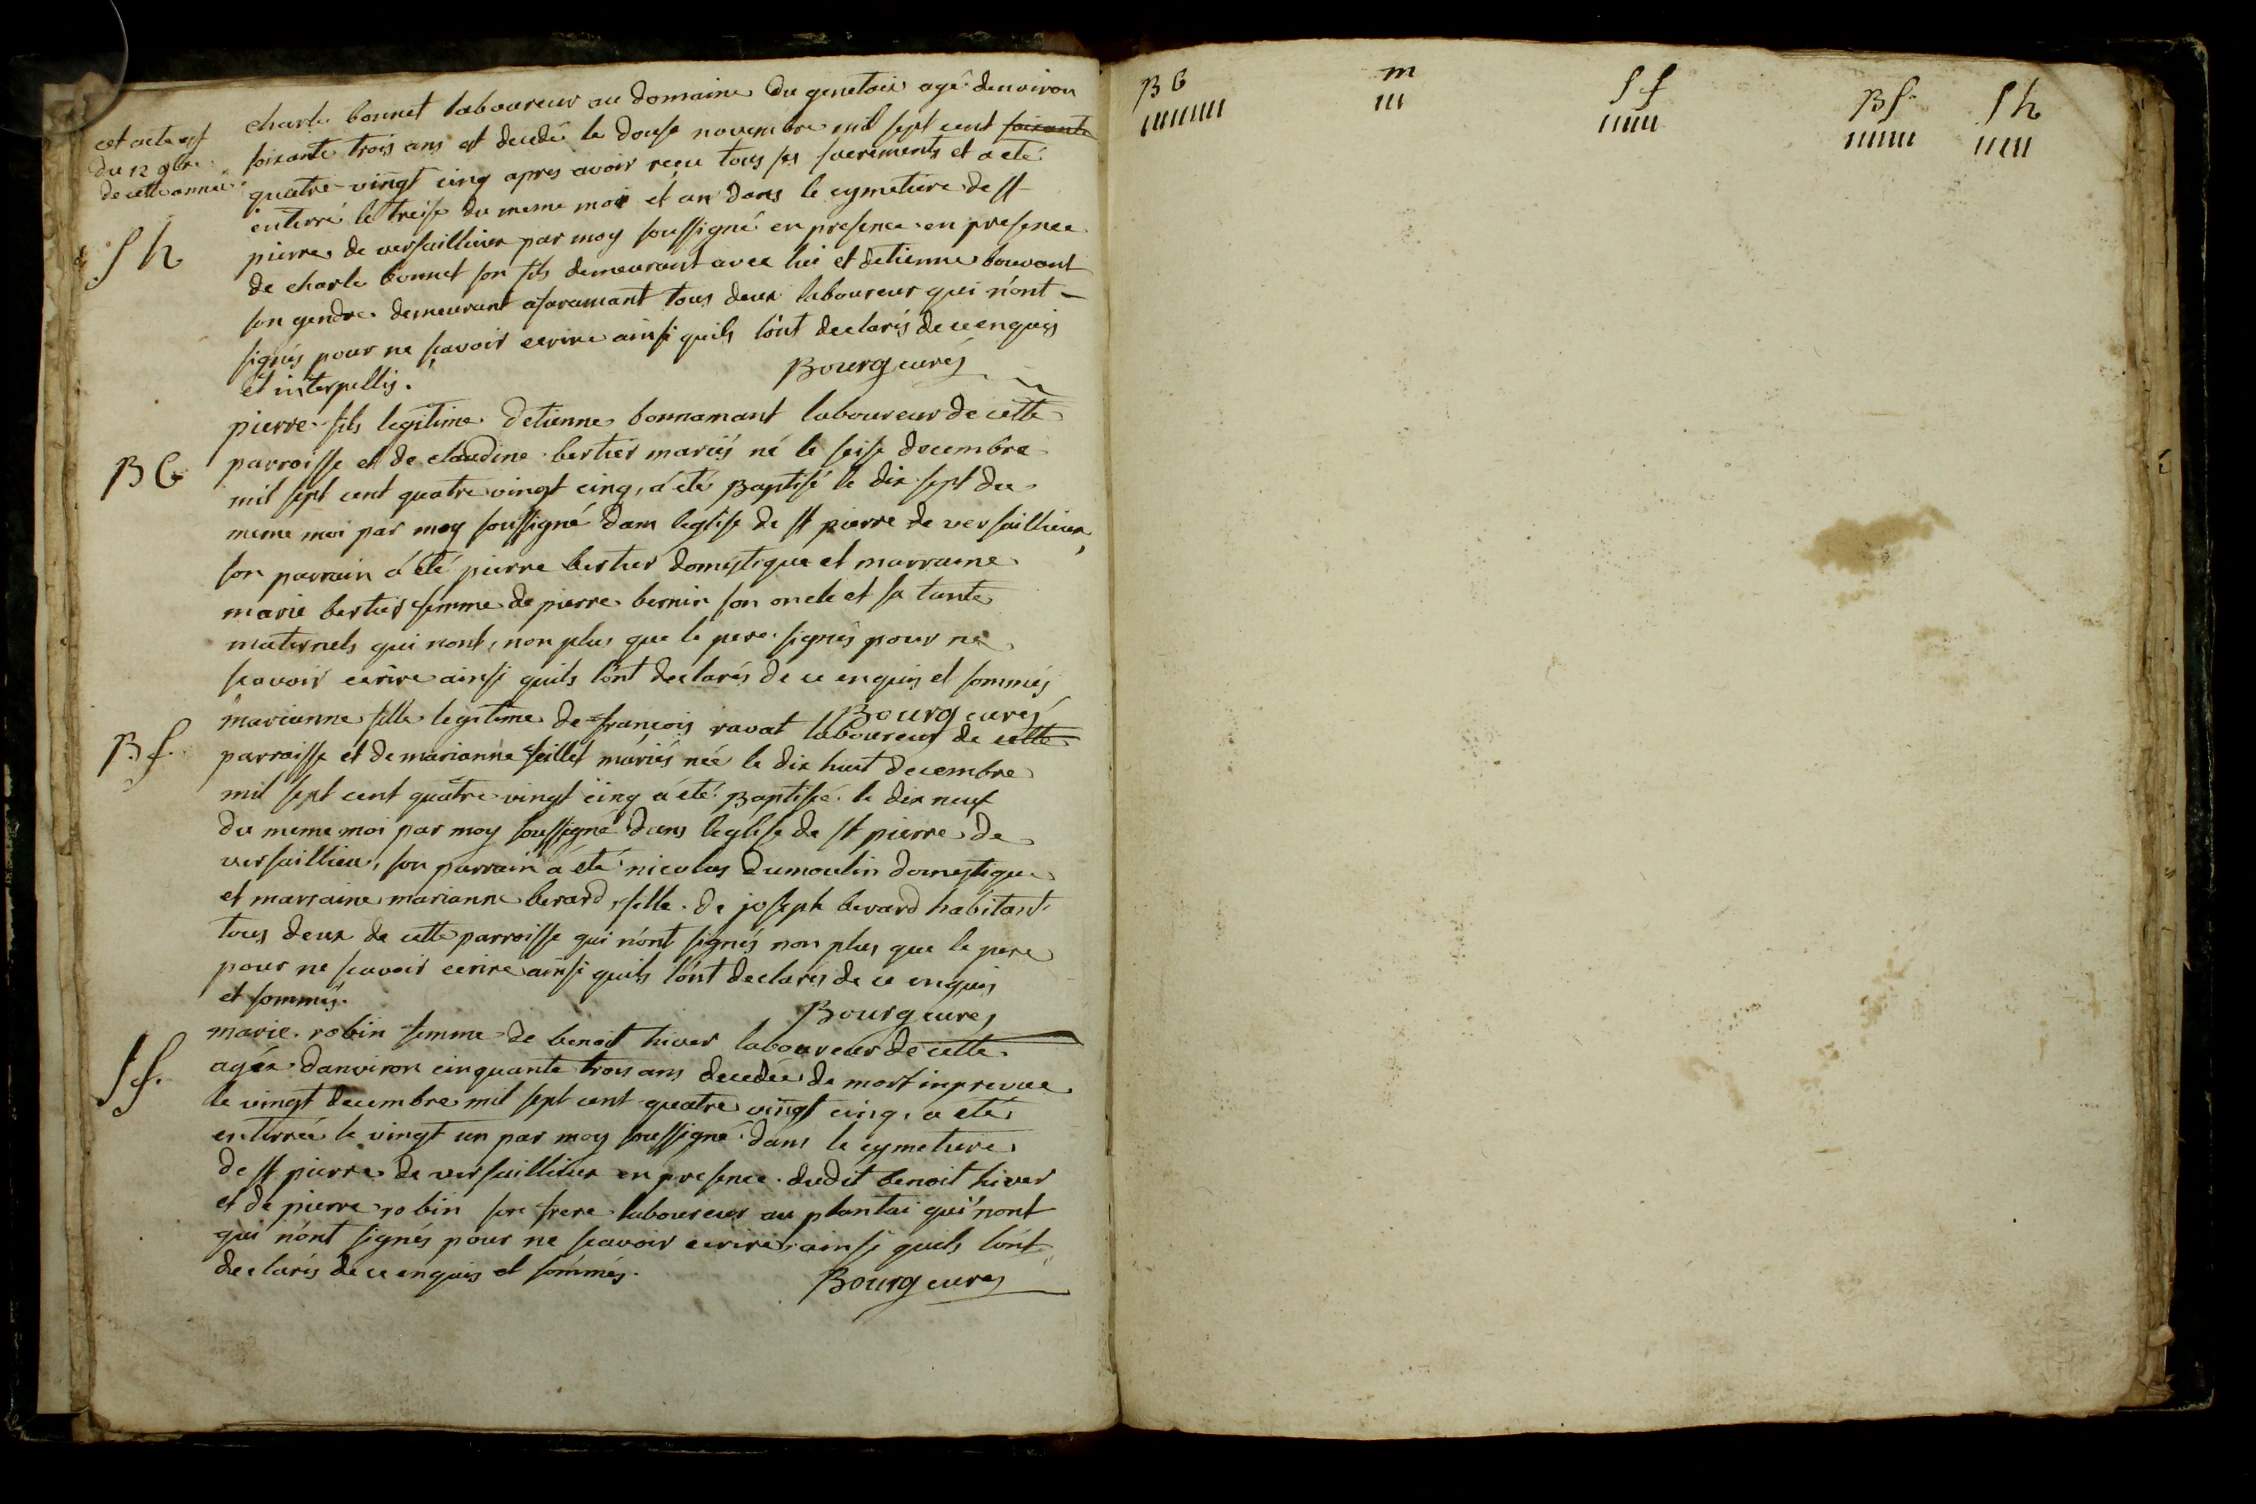 cet acte est
du 12 9bre
de cette année
S h
charle bonnet laboureur au domaine du genetais agé denviron
soixante trois ans est decedé le douse novembre mil sept cent soixante
quatre-vingt cinq apres avoir reçu tous ses sacrements et a eté
enterré le treise du meme moi et an dans le cymetiere de st
pierre de versaillieux par moy soussigné en presence en presence
de charle bonnet son fils demeurant avec lui et detienne bouvant
son gendre demeurant a faramant tous deux laboureur qui n'ont
signés pour ne scavoir ecrire ainsi quils l'ont declarés de ce enquis
et interpellés.
Bourg curé
B G
pierre fils legitime detienne bonnamant laboureur de cette
parroisse et de claudine bertier mariés né le seise decembre
mil sept cent quatre vingt cinq, a été Baptisé le dix sept du
meme moi par moy soussigné dans leglise de st pierre de versaillieux,
son parrain a été pierre bertier domestique et marraine
marie bertier femme de pierre bernin son oncle et sa tante
maternels qui n'ont, non plus que le pere signés pour ne
scavoir ecrire ainsi quils l'ont declarés de ce enquis et sommés
Bourg curé
B f.
marianne fille legitime de françois ravat laboureur de cette
parroisse et de marianne feillet mariés née le dix huit decembre
mil sept cent quatre vingt cinq a été Baptisée le dix neuf
du meme moi par moy soussigné dans leglise de st pierre de
versaillieu, son parrain a eté nicolas dumoulin domestique
et marraine marianne berard, fille de joseph berard habitant
tous deux de cette parroisse qui n'ont signés non plus que le pere
pour ne scavoir ecrire ainsi quils l'ont declarés de ce enquis
et sommés.
Bourg curé
S f.
marie robin femme de benoit hiver laboureur de cette
agée danviron cinquante trois ans decedée de mort inprevue
le vingt decembre mil sept cent quatre vingt cinq, a eté
enterrée le vingt un par moy soussigné dans le cymetiere
de st pierre de versaillieux en presence dudit benoit hiver
et de pierre robin son frere laboureur au plantai qui n'ont
qui n'ont signés pour ne scavoir ecrire ainsi quels l'ont
declarés de ce enquis et sommés.
Bourg curé
B G m S f B f. S h